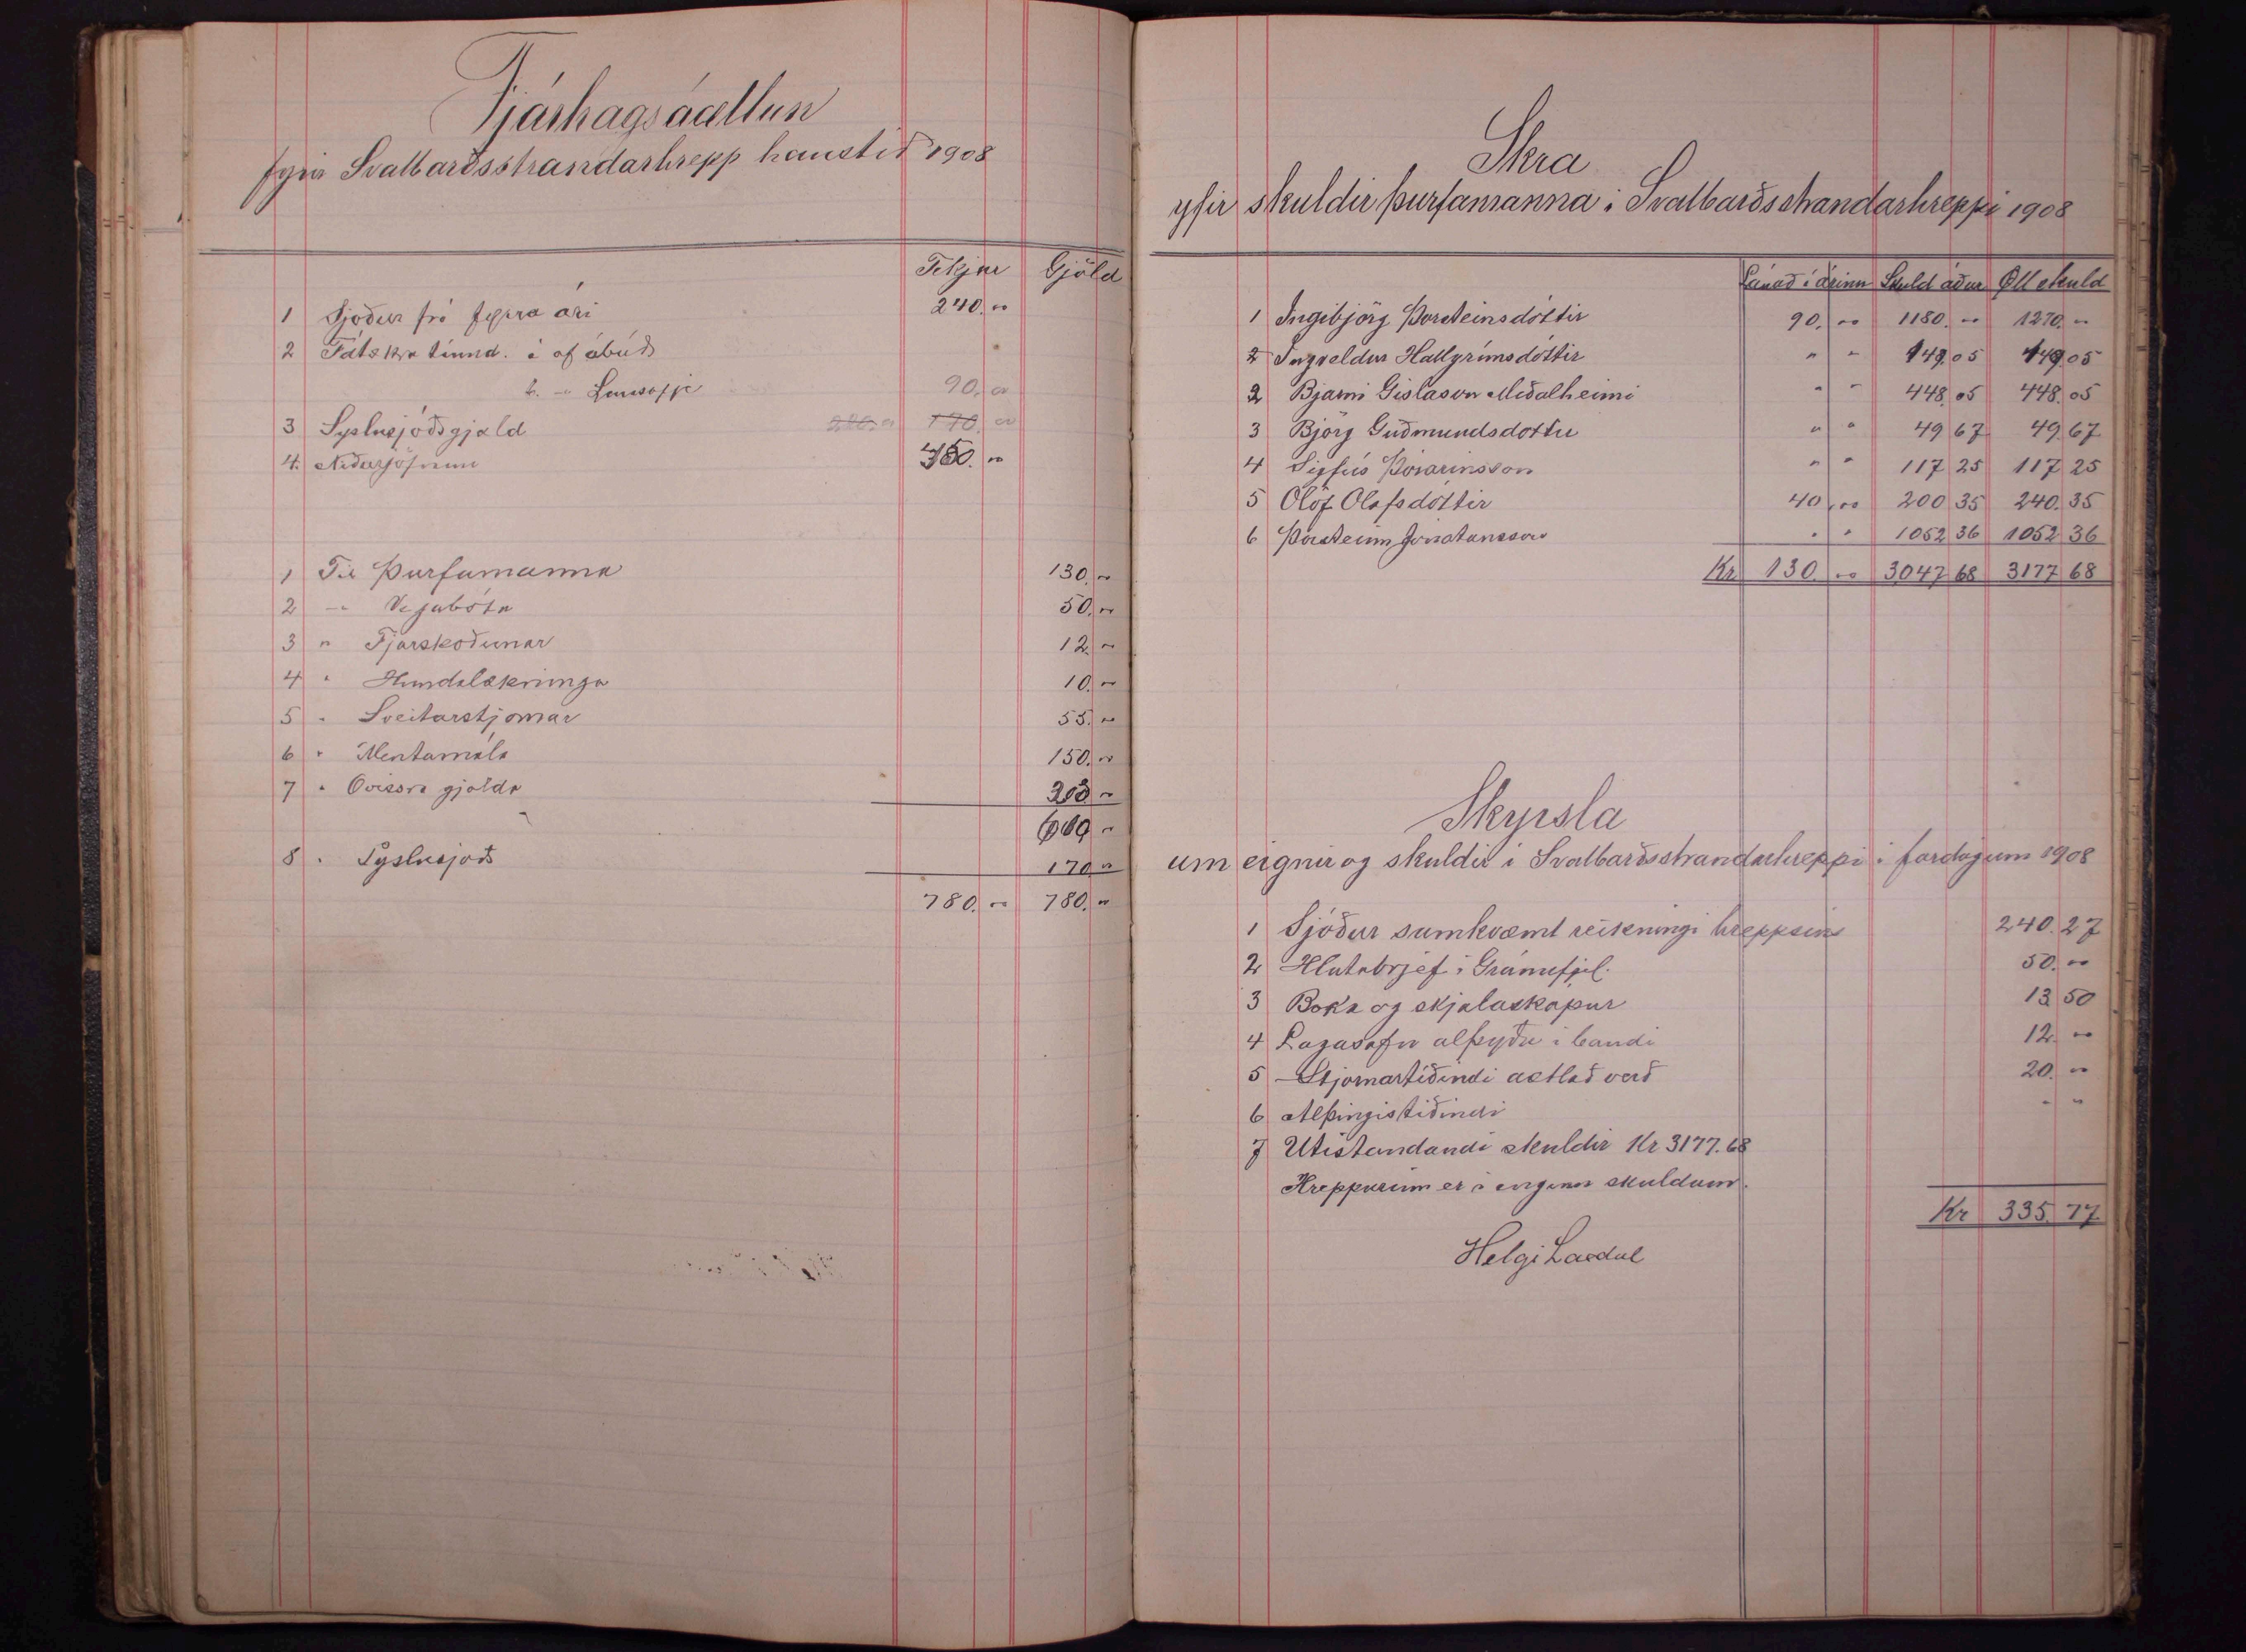 Fjárhagsáætlun
fyrir Svalbarðsstrandarhrepp haustið 1908
Tekjur Gjöld
1 Sjóður frá fyrra ári 240. "
2 Fátækra tíund. a af ábúð
b. - Lausafje 90. "
3 Syslusjóðsgjald 170. "
4. Niðurjöfnun 450. "
1 Til Þurfamanna 130. "
2 - Vegabóta 50. "
3 " Fjárskoðunar 12. "
4 " Hundalækninga 10. "
5 " Sveitarstjornar 55. "
6 " Mentamála 150. "
7 " Ovissra gjalda 203 "
610 "
8 " Syslusjoðs 170 "
780. " 780. "
Skra
yfir skuldir þurfamanna i Svalbarðsstrandarhreppi 1908
Lánað í árinu Skuld áður Öll skuld
1 Ingibjörg Þorsteinsdóttir 90. " 1180. " 1270. "
2 Ingveldur Hallgrímsdóttir " " 149.05 149.05
2 Bjarni Gislason Meðalheimi " " 448.05 448.05
3 Björg Guðmundsdottir " " 49 67 49.67
4 Sigfús Þórarinsson " " 117 25 117 25
5 Olöf Olafsdóttir 40. " 200 35 240.35
6 Þorsteinn Jónatansson " " 1052 36 1052 36
Kr 130. " 3047 68 3177 68
Skyrsla
um eignir og skuldir i Svalbarðsstrandarhreppi i fardögum 1908
1 Sjóður samkvæmt reikningi hreppsins 240.27
2 Hlutabrjef i Gránufjel. 50. "
3 Boka og skjalaskápur 13 50
4 Lagasafn alþyðu i bandi 12. "
5 Stjornartíðindi aetlað verð 20. "
6 Alþingistíðindi " "
7 Utistandandi skuldir Kr 3177.68
Hreppurinn er i engum skuldum.
Kr 335.77
Helgi Laxdal